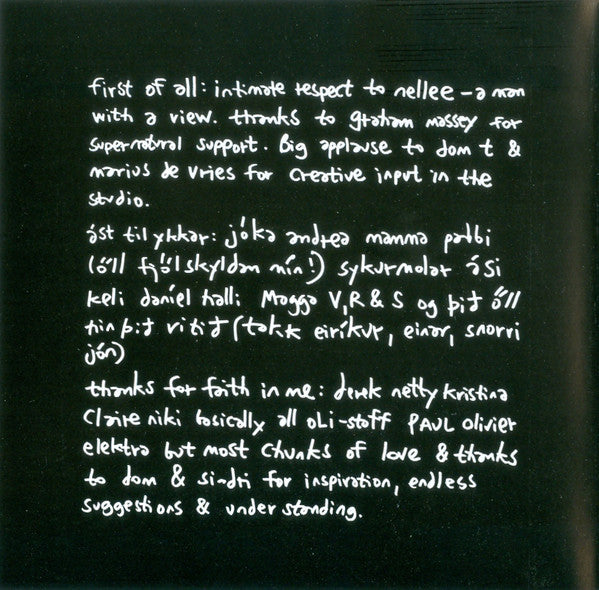 first of all: intimate respect to nellee – a man
with a view. thanks to graham massey for
supernatural support. Big applause to dom t &
marius de vries for creative input in the
studio.
ást til ykkar: jóka andrea mamma pabbi
(öll fjölskyldan mín!) sykurmolar ási
keli daníel halli Magga V, R & S og þið öll
hin þið vitið (takk eiríkur, einar, snorri
jón)
thanks for faith in me: derek netty kristina
Claire niki basically all OLI-staff PAUL olivier
elektra but most chunks of love & thanks
to dom & sindri for inspiration, endless
suggestions & understanding.